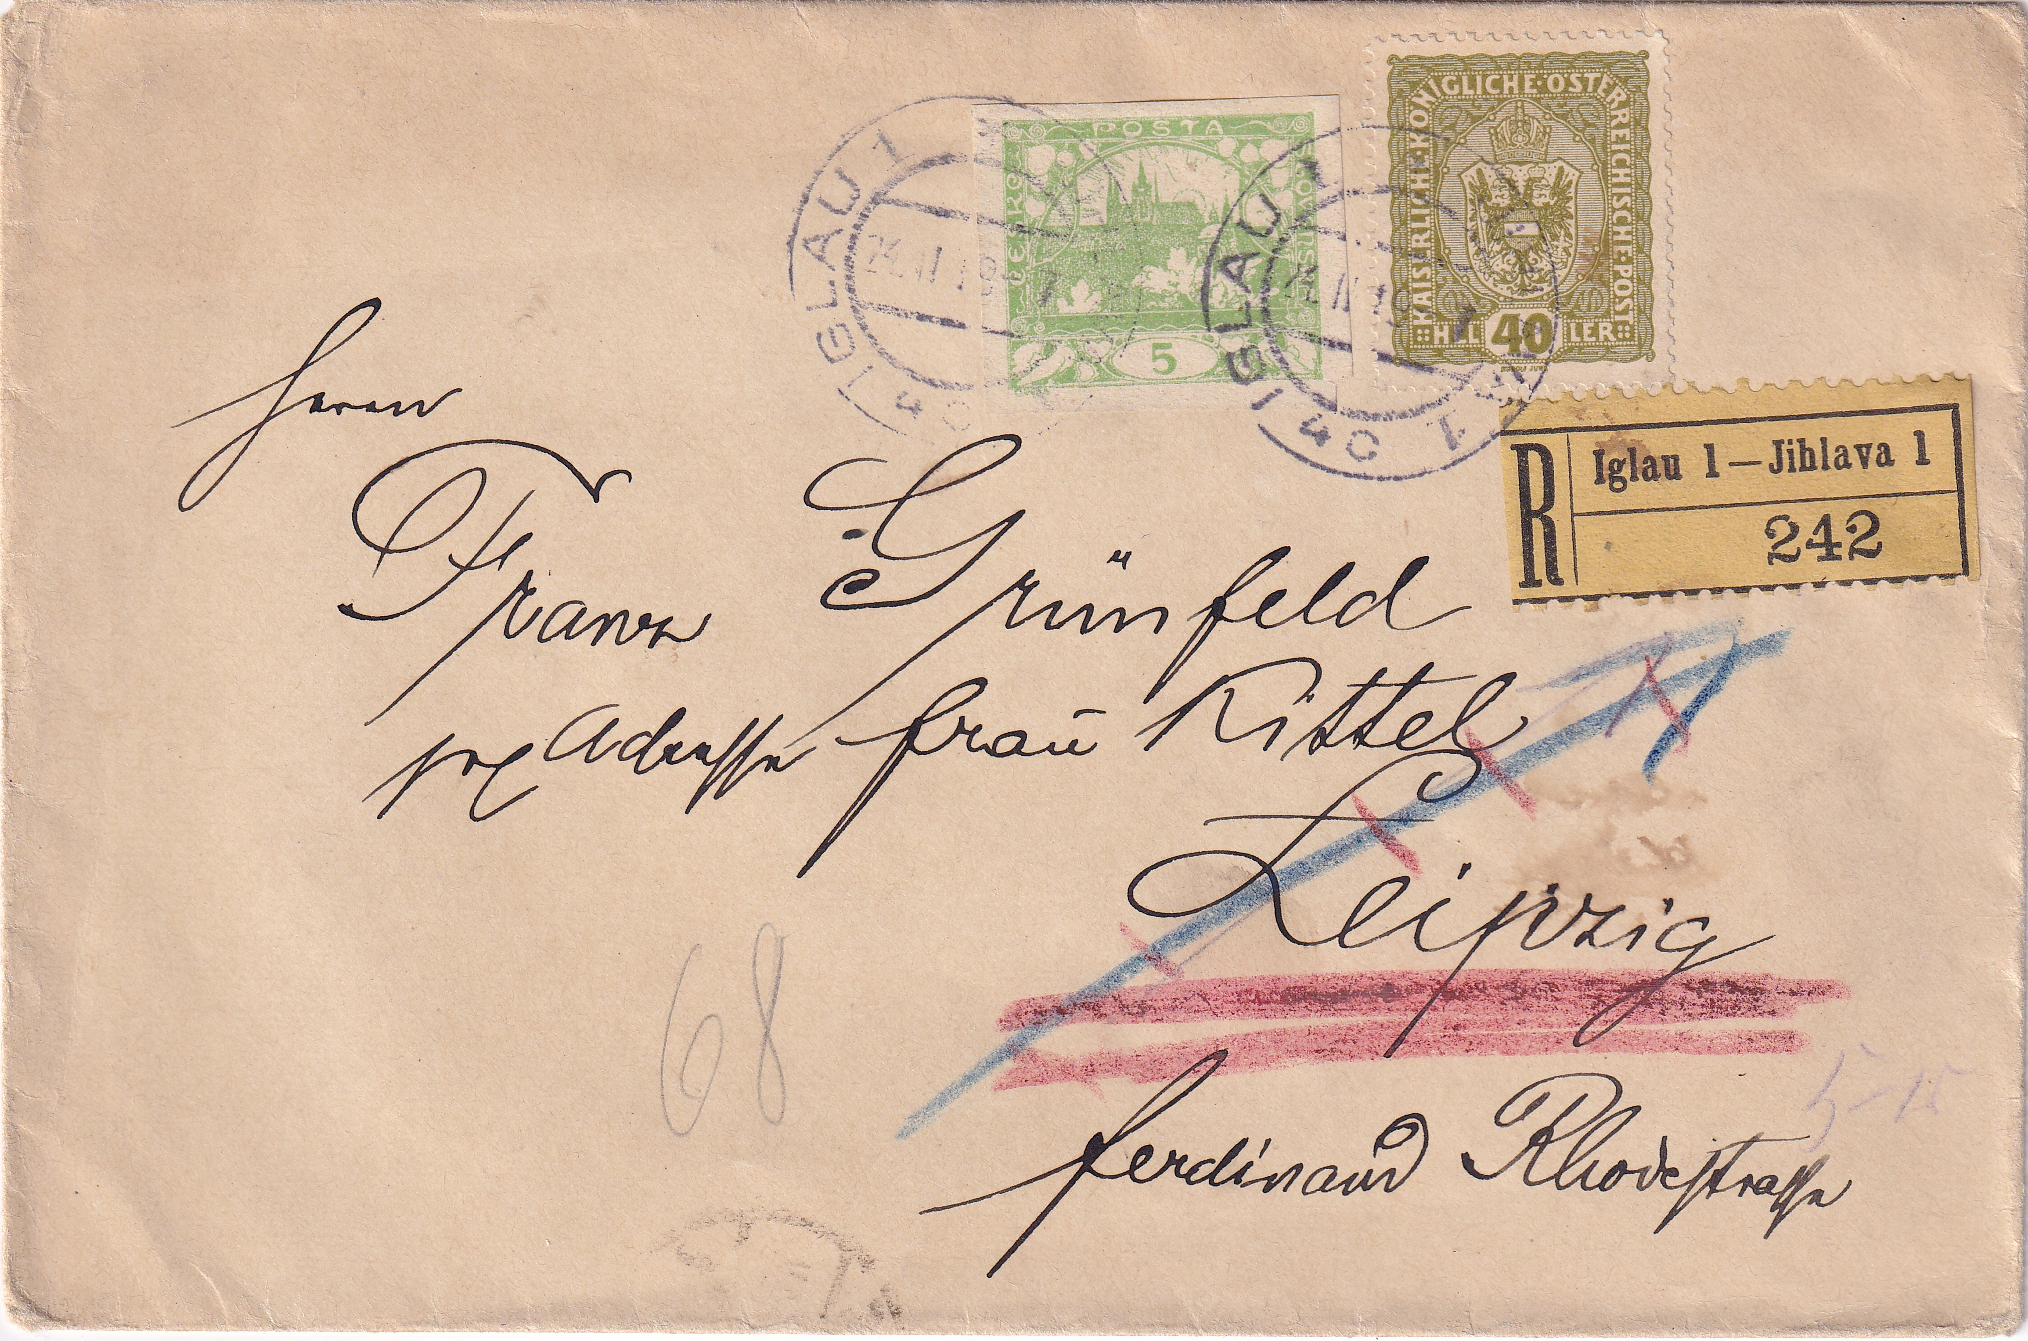 POSTA
ČESKO
SLOVENSKÁ
5
KAISERLICHE·KÖNIGLICHE·ÖSTERREICHISCHE·POST
HELLER
40
IGLAU 1
24.II.19
IGLAU 1
24.II.19
R
Iglau 1 — Jihlava 1
242
Herrn
Franz Grünfeld
per Adresse Frau Kittel
Leipzig
Ferdinand Rhodestrasse
68